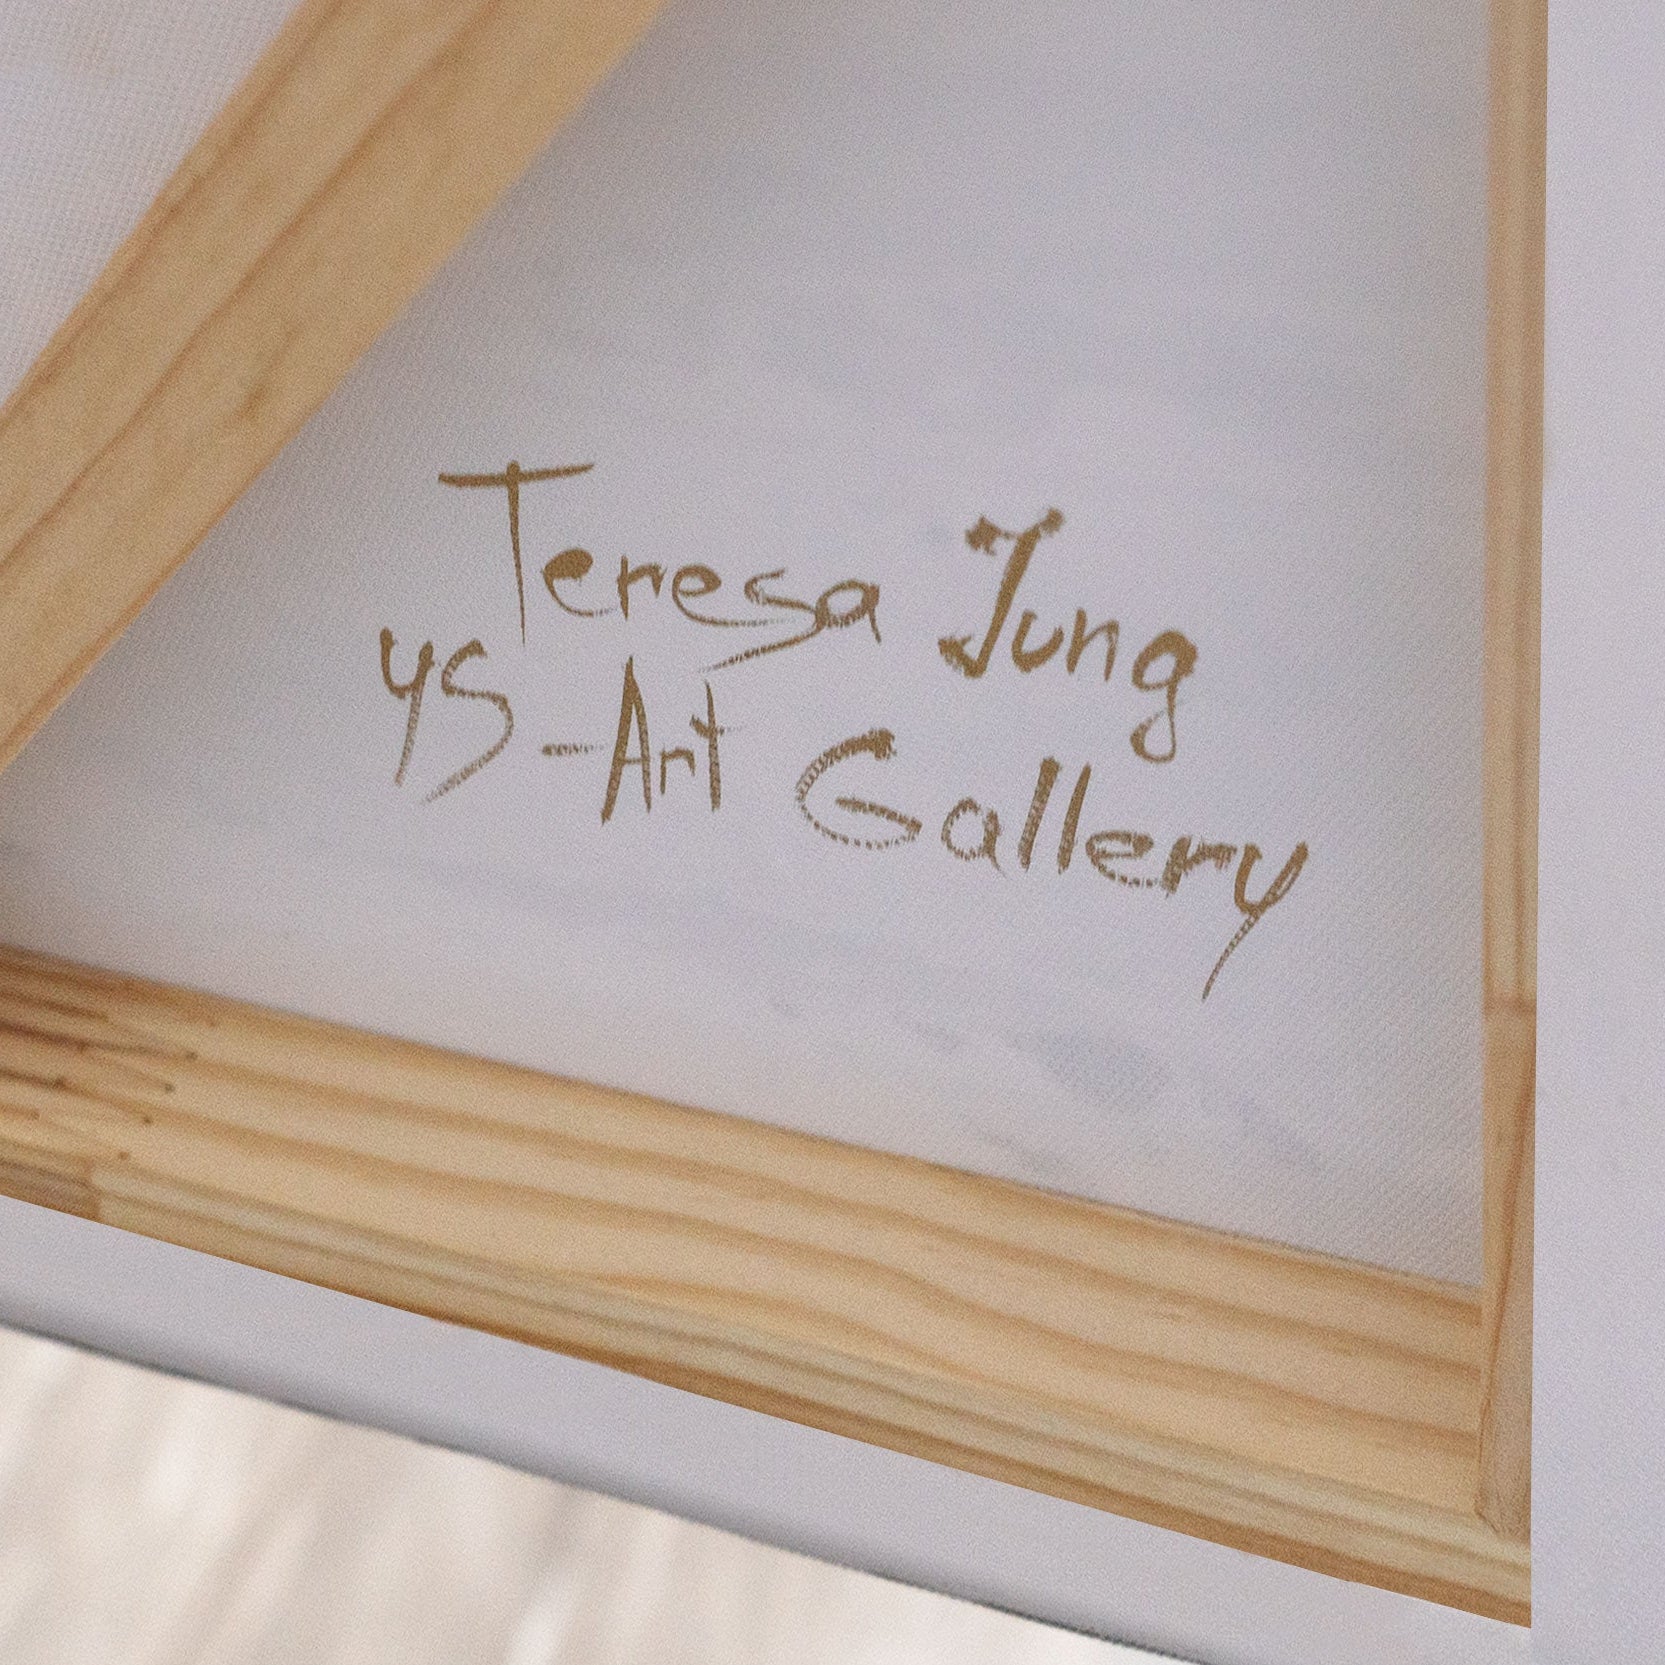 Teresa Jung
YS-Art Gallery